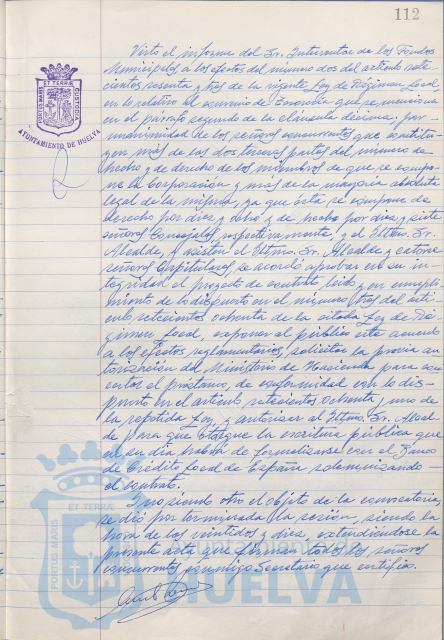 112
Visto el informe del Sr. Interventor de los Fondos
Municipales, a los efectos del número dos del artículo sete-
cientos sesenta y tres de la vigente Ley de Régimen Local,
en lo relativo al convenio de Tesorería que se menciona
en el párrafo segundo de la cláusula décima, por
unanimidad de los señores concurrentes que constitu-
yen más de las dos terceras partes del número de
hecho y de derecho de los miembros de que se compo-
ne la Corporación y más de la mayoría absoluta
legal de la misma, ya que ésta se compone de
derecho por diez y ocho y de hecho por diez y siete
señores Concejales respectivamente, y el Iltmo. Sr.
Alcalde, y asisten el Iltmo. Sr. Alcalde y catorce
señores Capitulares, se acordó aprobar en su in-
tegridad el proyecto de contrato leido y en cumpli-
miento de lo dispuesto en el número tres del artí-
culo setecientos ochenta de la citada Ley de Ré-
gimen Local, exponer al público este acuerdo
a los efectos reglamentarios, solicitar la previa au-
torización del Ministerio de Hacienda para con-
certar el préstamo, de conformidad con lo dis-
puesto en el artículo setecientos ochenta y uno de
la repetida Ley, y autorizar al Iltmo. Sr. Alcal-
de para que otorgue la escritura pública que
en su día habrá de formalizarse con el Banco
de Crédito Local de España solemnizando
el contrato.
Y no siendo otro el objeto de la convocatoria,
se dió por terminada la sesión, siendo la
hora de las veintidos y diez, extendiéndose la
presente acta que firman todos los señores
concurrentes, conmigo Secretario que certifico.
ET TERRÆ
PORTUS MARIS
CUSTODIA
AYUNTAMIENTO DE HUELVA
ET TERRÆ
PORTUS MARIS
HUELVA